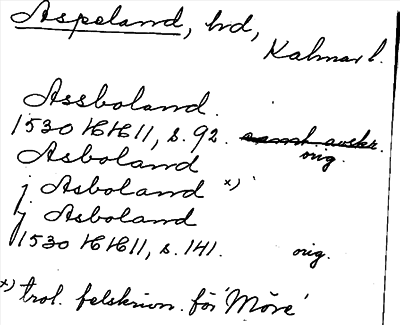 Aspeland, hd,
Kalmar l.
Assboland.
1530 HH 11, s. 92. samt. avskr.
orig.
Asboland
j Asboland x)
j Asboland
1530 HH 11, s. 141. orig.
x) trol. felskrivn. för 'Möre'